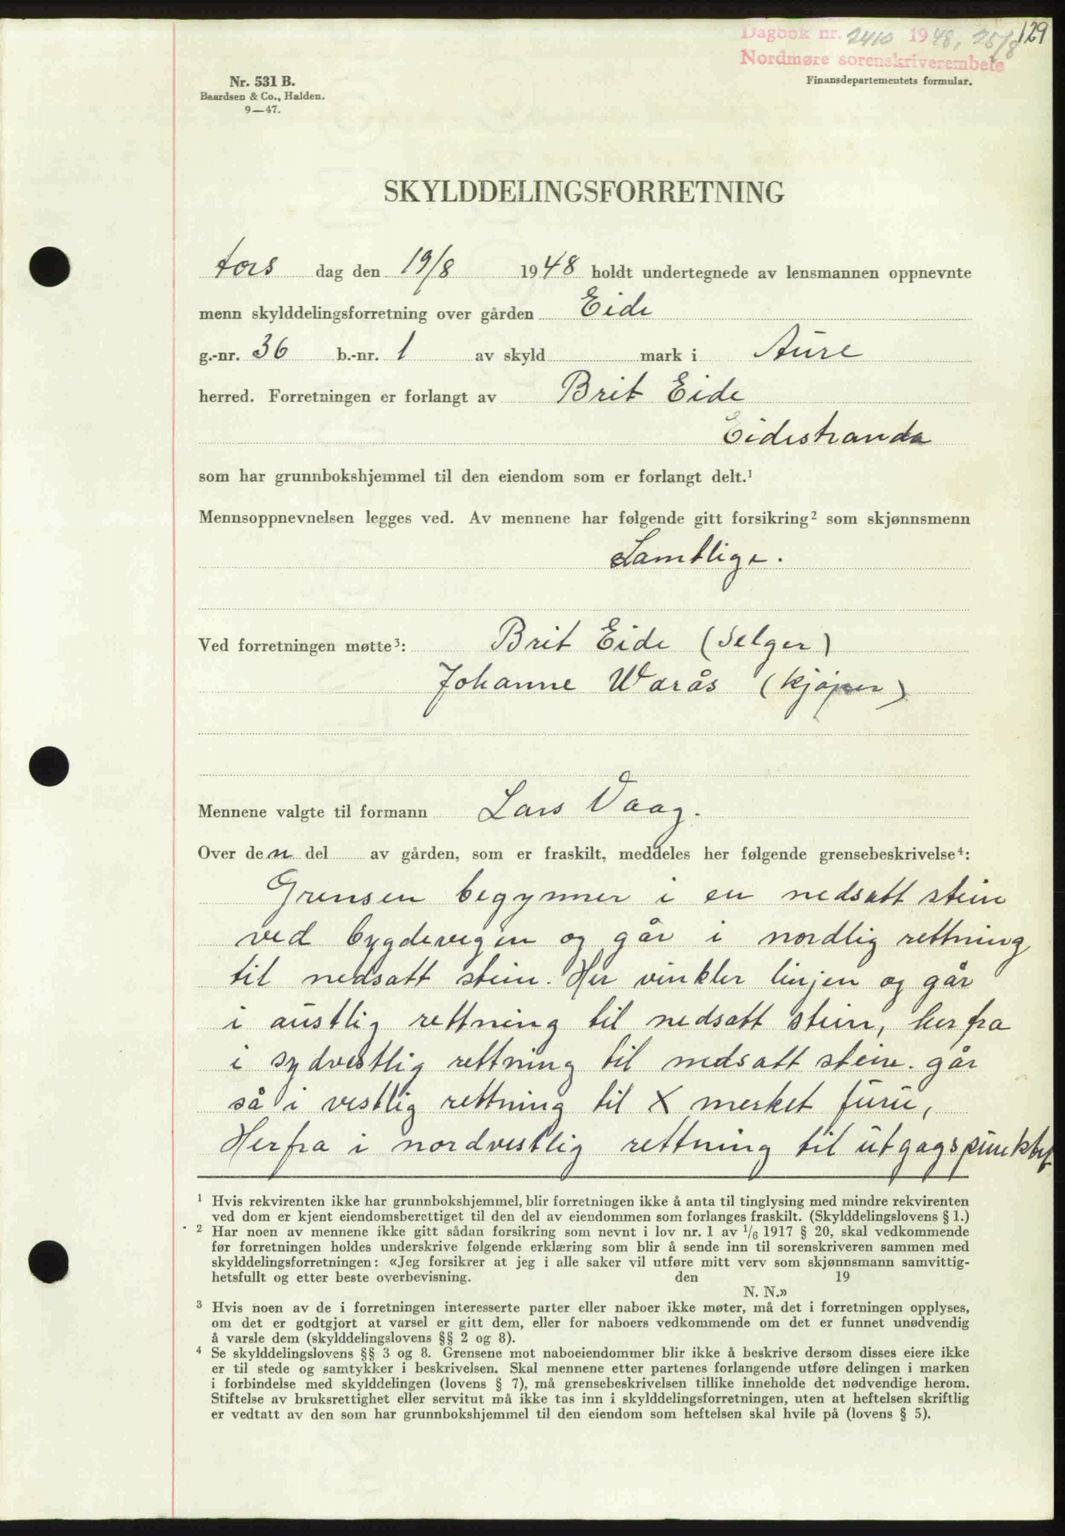 129
Dagbok nr. 2410 1948, 25/8
Nordmøre sorenskriverembete
Finansdepartementets formular.
Nr. 531 B.
Baardsen & Co., Halden.
9—47.
SKYLDDELINGSFORRETNING
tors dag den 19/8 1948 holdt undertegnede av lensmannen oppnevnte
menn skylddelingsforretning over gården Eide
g.-nr. 36 b.-nr. 1 av skyld mark i Aure
herred. Forretningen er forlangt av Brit Eide
Eidestranda
som har grunnbokshjemmel til den eiendom som er forlangt delt.¹
Mennsoppnevnelsen legges ved. Av mennene har følgende gitt forsikring² som skjønnsmenn
Samtlige.
Ved forretningen møtte³: Brit Eide (Selger)
Johanne Warås (kjøper)
Mennene valgte til formann Lars Vaag.
Over den del av gården, som er fraskilt, meddeles her følgende grensebeskrivelse⁴:
Grensen begynner i en nedsatt stein
ved bygdevegen og går i nordlig rettning
til nedsatt stein. Her vinkler linjen og går
i austlig rettning til nedsatt stein, herfra
i sydvestlig rettning til nedsatt stein. går
så i vestlig rettning til X merket furu,
Herfra i nordvestlig rettning til utgagspunktet
¹ Hvis rekvirenten ikke har grunnbokshjemmel, blir forretningen ikke å anta til tinglysing med mindre rekvirenten
ved dom er kjent eiendomsberettiget til den del av eiendommen som forlanges fraskilt. (Skylddelingslovens § 1.)
² Har noen av mennene ikke gitt sådan forsikring som nevnt i lov nr. 1 av 1/6 1917 § 20, skal vedkommende
før forretningen holdes underskrive følgende erklæring som blir å sende inn til sorenskriveren sammen med
skylddelingsforretningen: «Jeg forsikrer at jeg i alle saker vil utføre mitt verv som skjønnsmann samvittig-
hetsfullt og etter beste overbevisning. den 19
N. N.»
³ Hvis noen av de i forretningen interesserte parter eller naboer ikke møter, må det i forretningen opplyses,
om det er godtgjort at varsel er gitt dem, eller for naboers vedkommende om det er funnet unødvendig
å varsle dem (skylddelingslovens §§ 2 og 8).
⁴ Se skylddelingslovens §§ 3 og 8. Grensene mot naboeiendommer blir ikke å beskrive dersom disses eiere ikke
er til stede og samtykker i beskrivelsen. Skal mennene etter partenes forlangende utføre delingen i marken
i forbindelse med skylddelingen (lovens § 7), må grensebeskrivelsen tillike inneholde det nødvendige herom.
Stiftelse av bruksrettighet eller servitut må ikke tas inn i skylddelingsforretningen, uten at heftelsen skriftlig
er vedtatt av den som har grunnbokshjemmel til den eiendom som heftelsen skal hvile på (lovens § 5).